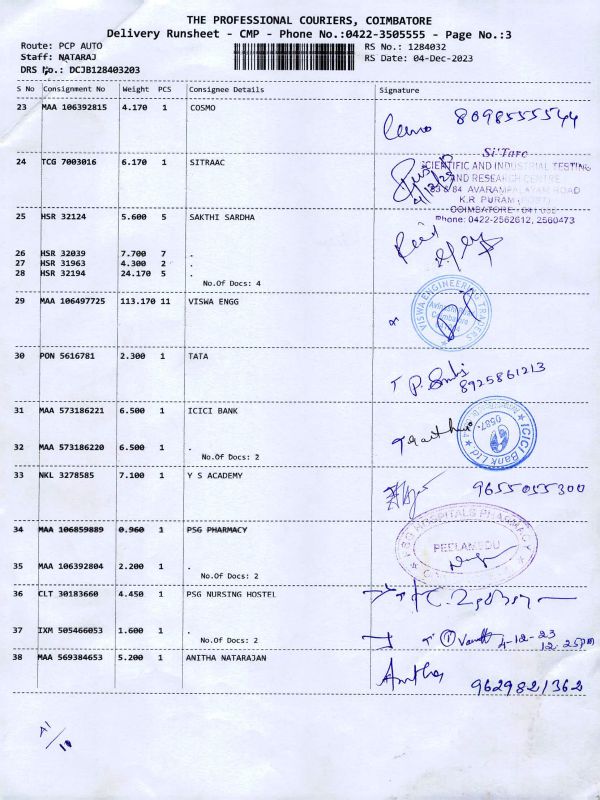 THE PROFESSIONAL COURIERS, COIMBATORE
Delivery Runsheet - CMP - Phone No.:0422-3505555 - Page No.:3
Route: PCP AUTO
RS No.: 1284032
Staff: NATARAJ
RS Date: 04-Dec-2023
DRS No.: DCJB128403203
S No Consignment No Weight PCS Consignee Details Signature
23 MAA 106392815 4.170 1 COSMO
8098555544
Si'Tarc
24 TCG 7003016 6.170 1 SITRAAC
SCIENTIFIC AND INDUSTRIAL TESTING
AND RESEARCH CENTRE
83 & 84 AVARAMPALAYAM ROAD
K.R PURAM (POST)
COIMBATORE - 641 006
Phone: 0422-2562612, 2560473
25 HSR 32124 5.600 5 SAKTHI SARDHA
26 HSR 32039 7.700 7 .
27 HSR 31963 4.300 2 .
28 HSR 32194 24.170 5 .
No.Of Docs: 4
29 MAA 106497725 113.170 11 VISWA ENGG
VISWA ENGINEERING TRADERS
Coimbatore
30 PON 5616781 2.300 1 TATA
8925861213
31 MAA 573186221 6.500 1 ICICI BANK
ICICI Bank Ltd
0587
32 MAA 573186220 6.500 1 .
No.Of Docs: 2
33 NKL 3278585 7.100 1 Y S ACADEMY
9655055300
34 MAA 106859889 0.960 1 PSG PHARMACY
PSG HOSPITALS PHARMACY
PEELAMEDU
35 MAA 106392804 2.200 1 .
No.Of Docs: 2
36 CLT 30183660 4.450 1 PSG NURSING HOSTEL
37 IXM 505466053 1.600 1 .
4-12-23
12.25pm
No.Of Docs: 2
38 MAA 569384653 5.200 1 ANITHA NATARAJAN
Anitha
9629821362
A1/10